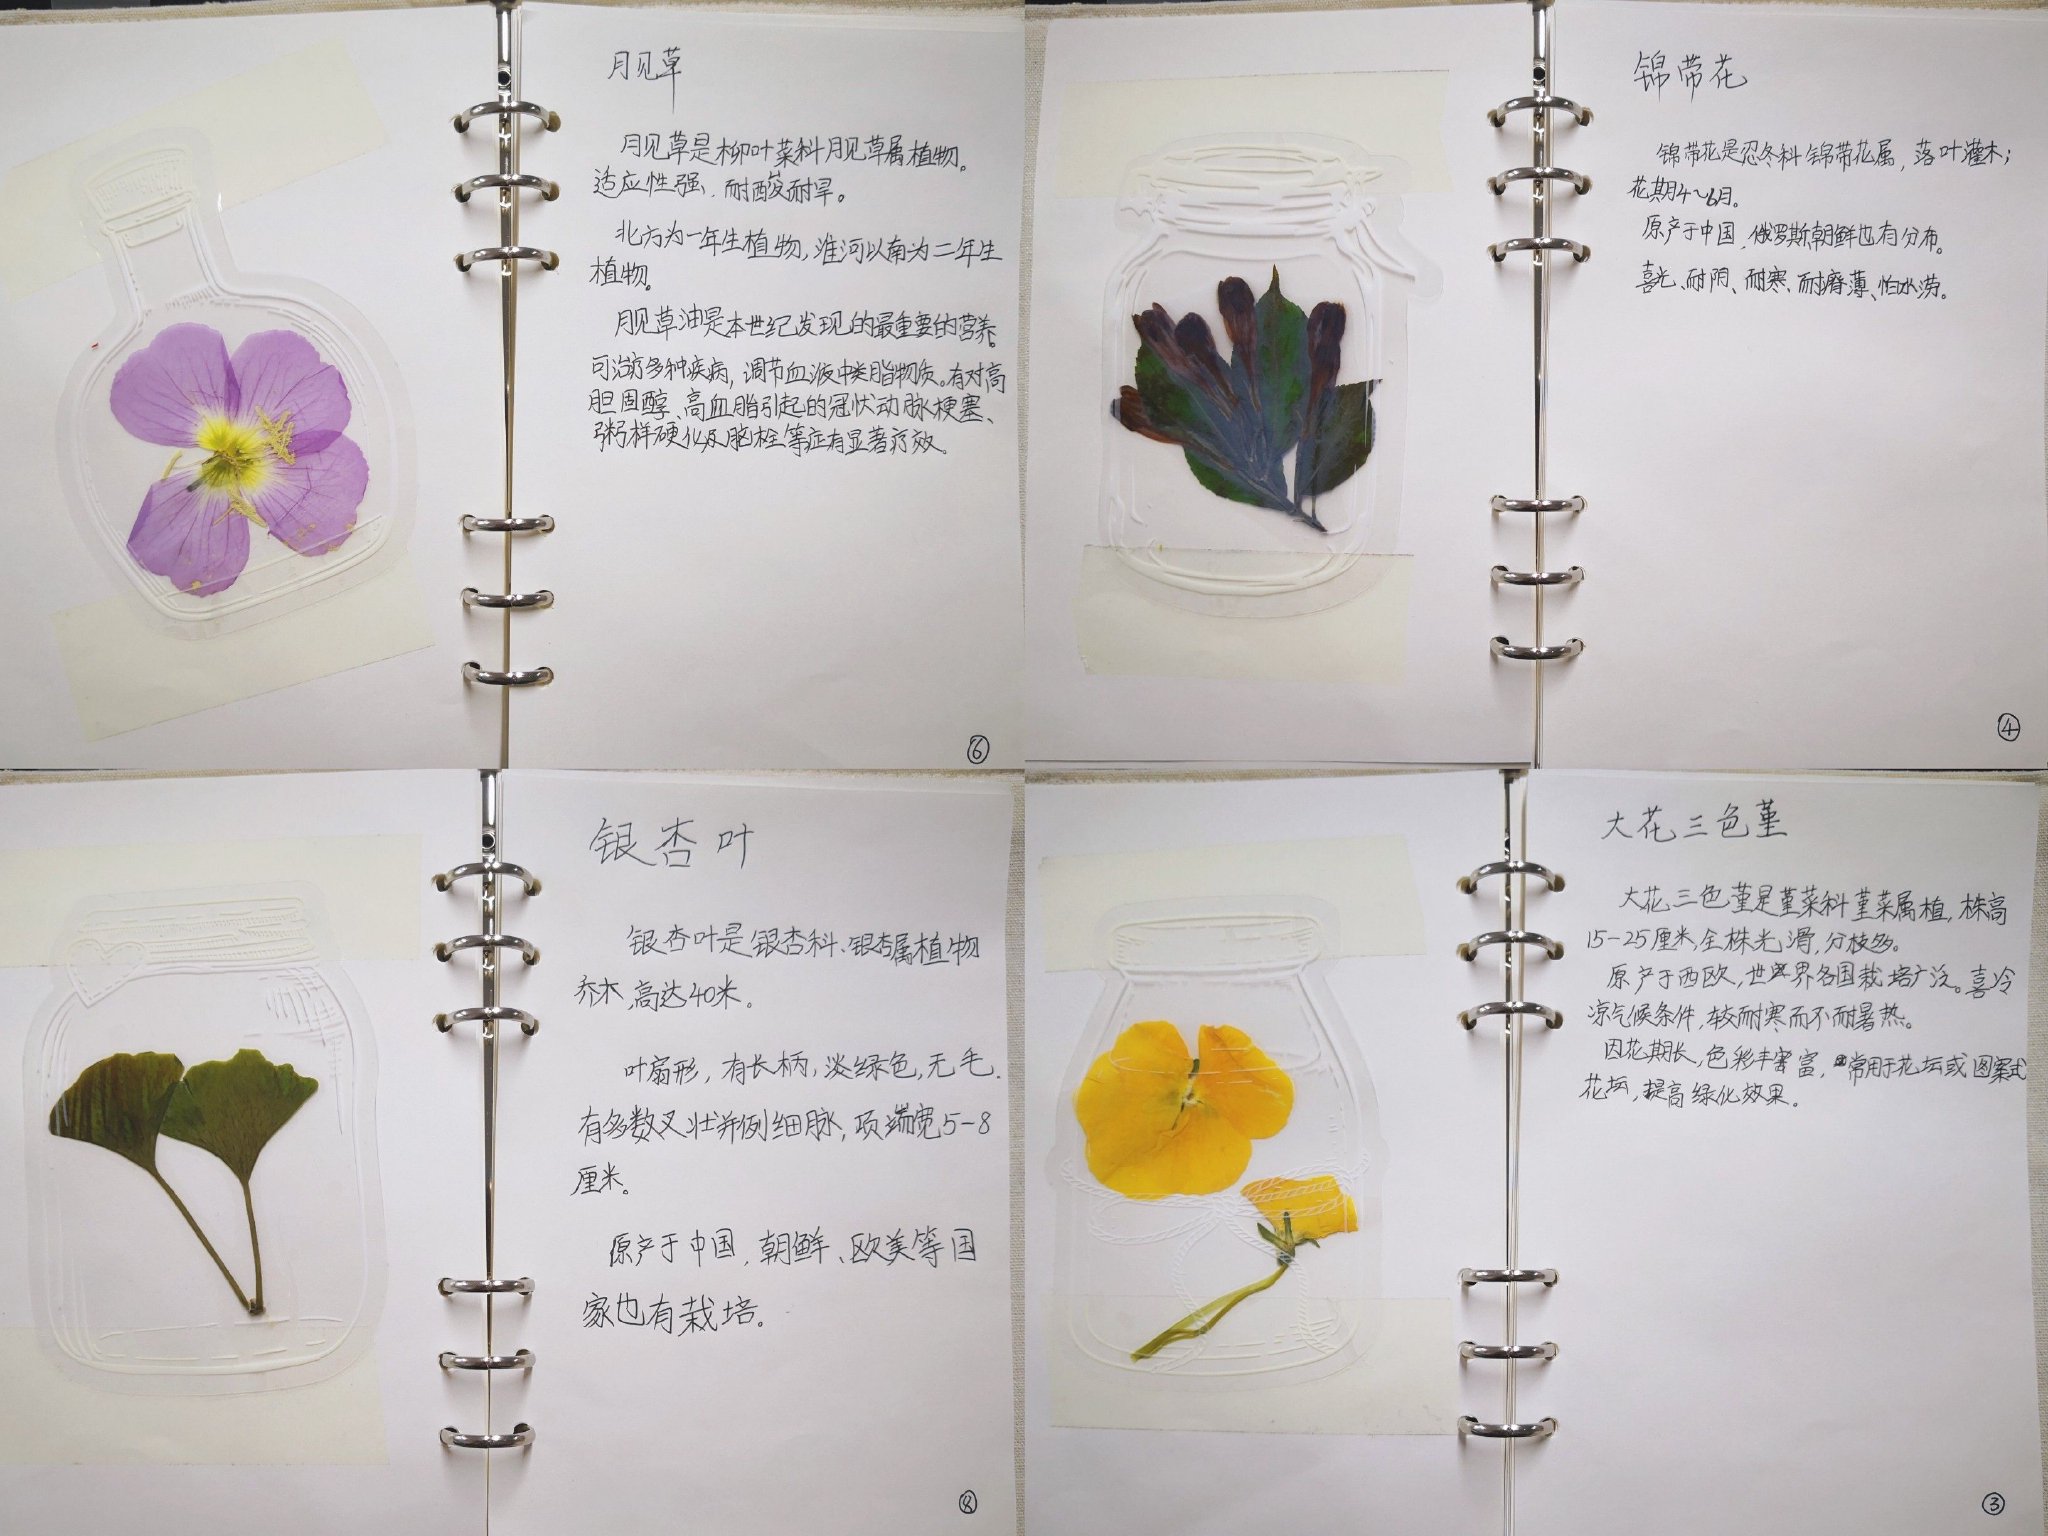 月见草
月见草是柳叶菜科月见草属植物。
适应性强、耐酸耐旱。
北方为一年生植物,淮河以南为二年生
植物。
月见草油是本世纪发现的最重要的营养。
可治疗多种疾病,调节血液中类脂物质。有对高
胆固醇、高血脂引起的冠状动脉梗塞、
粥样硬化及脑栓等症有显著疗效。
⑥
锦带花
锦带花是忍冬科锦带花属,落叶灌木;
花期4~6月。
原产于中国,俄罗斯朝鲜也有分布。
喜光、耐阴、耐寒、耐瘠薄、怕水涝。
④
银杏叶
银杏叶是银杏科、银杏属植物
乔木,高达40米。
叶扇形,有长柄,淡绿色,无毛.
有多数叉状并列细脉,顶端宽5-8
厘米。
原产于中国,朝鲜、欧美等国
家也有栽培。
⑧
大花三色堇
大花三色堇是堇菜科堇菜属植,株高
15-25厘米,全株光滑,分枝多。
原产于西欧,世界各国栽培广泛。喜冷
凉气候条件,较耐寒而不耐暑热。
因花期长,色彩丰富,常用于花坛或图案式
花坛,提高绿化效果。
③